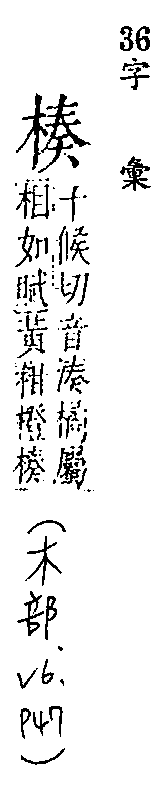 36字彙
楱
千候切音湊橘屬
相如賦黃柑橙楱
(木部.v6.p47)